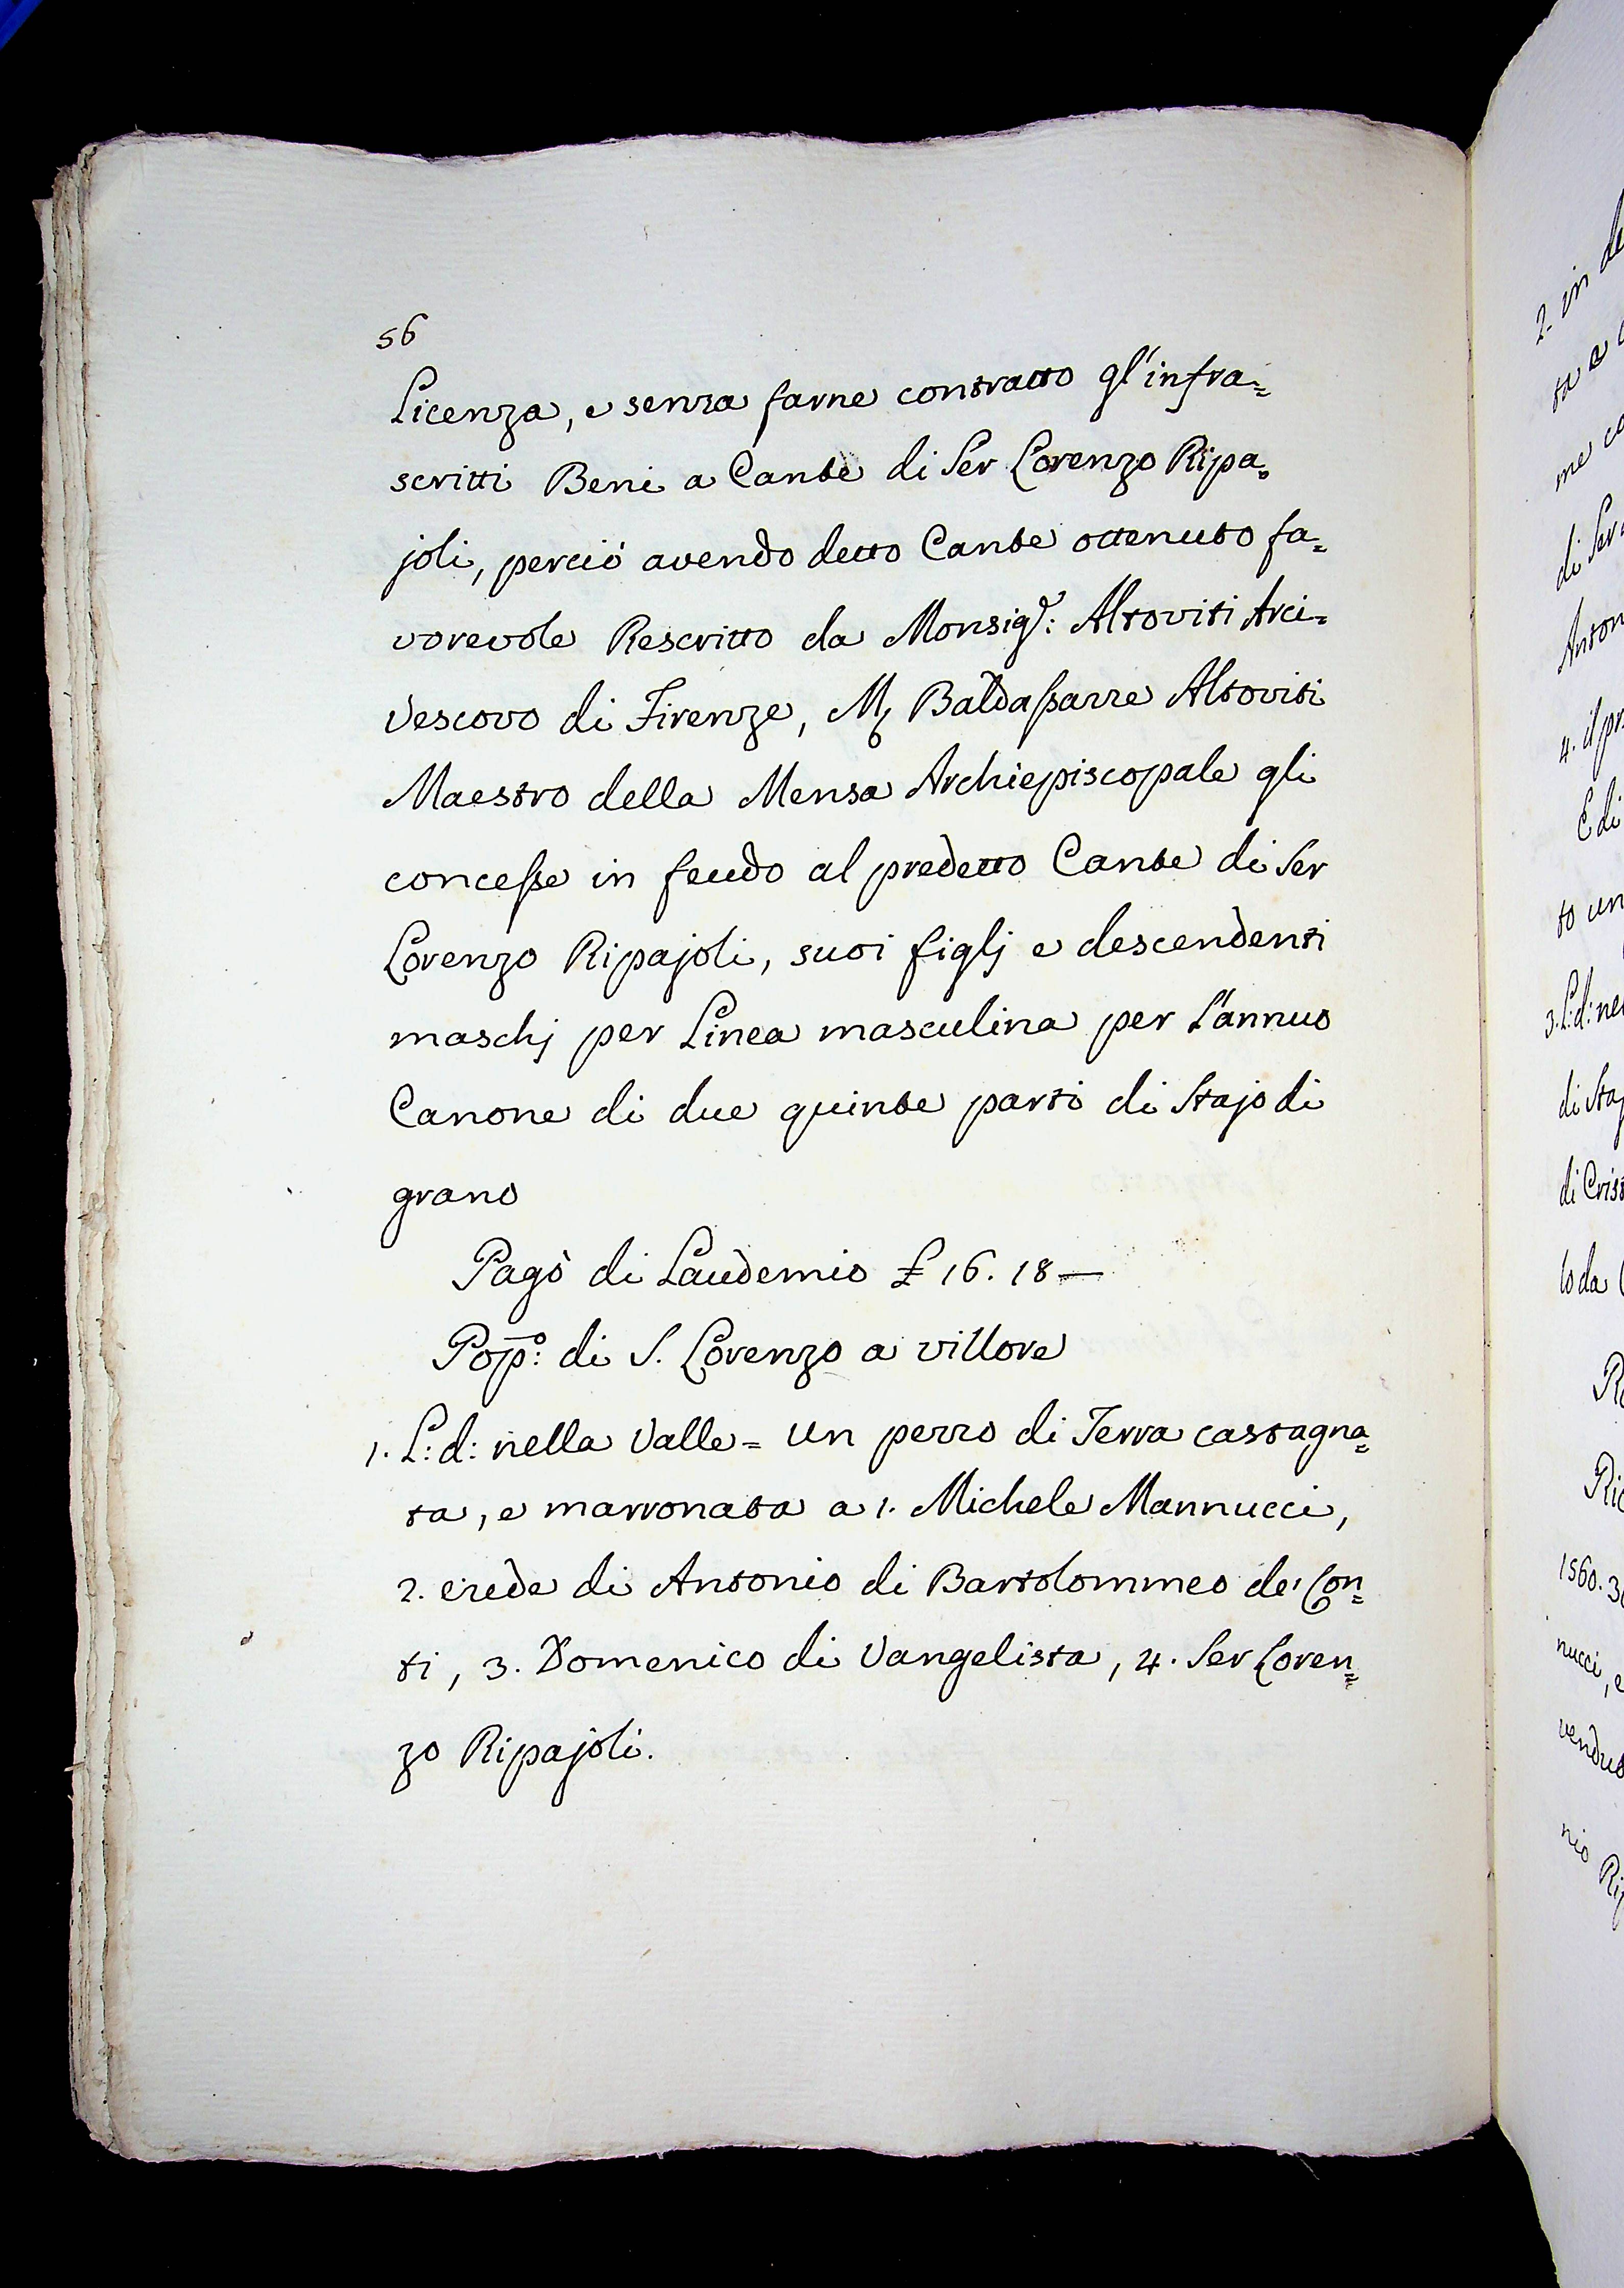 56
Licenza, e senza farne contratto gl'infra=
scritti Beni a Cante di Ser Lorenzo Ripa=
joli, perciò avendo detto Cante ottenuto fa=
vorevole Rescritto da Monsigr: Altoviti Arci=
vescovo di Firenze, M Baldassarre Altoviti
Maestro della Mensa Archiepiscopale gli
concesse in feudo al predetto Cante di Ser
Lorenzo Ripajoli, suoi figlj e descendenti
maschj per Linea masculina per l'annuo
Canone di due quinte parti di Stajo di
grano
Pagò di Laudemio £ 16. 18—
Popo: di S. Lorenzo a villore
1. L: d: nella Valle= un pezzo di Terra castagna=
ta, e marronata a 1. Michele Mannucci,
2. erede di Antonio di Bartolommeo de' Con=
ti, 3. Domenico di Vangelista, 4. Ser Loren=
zo Ripajoli.
2. in
me
di Ser
4. il
E di
to un
3. L: d:
di
di
lo da
1560.
nucci,